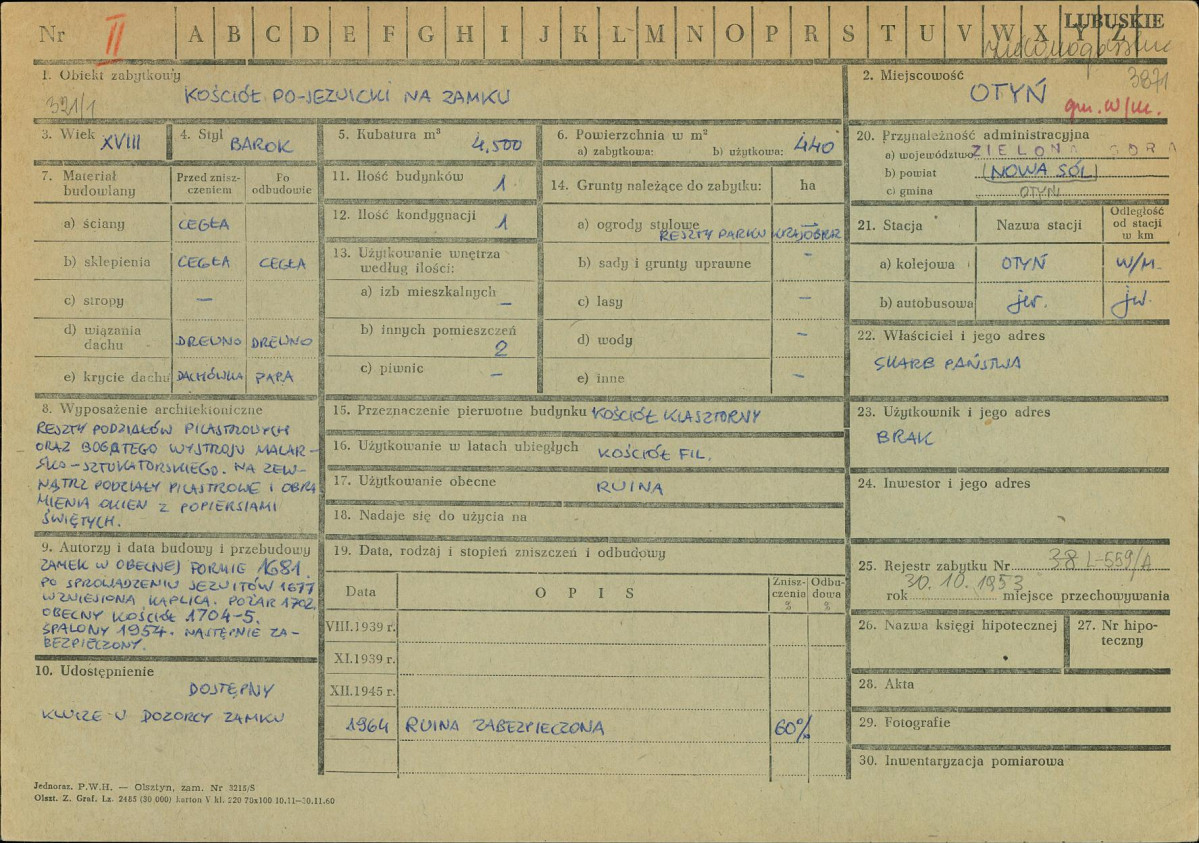 Nr II A B C D E F G H I J K L M N O P R S T U V W X Y Z
LUBUSKIE
1. Obiekt zabytkowy
321/1
KOŚCIÓŁ PO-JEZUICKI NA ZAMKU
2. Miejscowość
3871
OTYŃ
gm. w/m.
3. Wiek XVIII
4. Styl BAROK
5. Kubatura m³ 4.500
6. Powierzchnia w m²
a) zabytkowa: b) użytkowa: 440
7. Materiał budowlany
Przed zniszczeniem
Po odbudowie
a) ściany CEGŁA
b) sklepienia CEGŁA CEGŁA
c) stropy —
d) wiązania dachu DREWNO DREWNO
e) krycie dachu DACHÓWKA PAPA
8. Wyposażenie architektoniczne
RESZTY PODZIAŁÓW PILASTROWYCH
ORAZ BOGATEGO WYSTROJU MALAR-
SKO-SZTUKATORSKIEGO. NA ZEW-
NĄTRZ PODZIAŁY PILASTROWE I OBRA
MIENIA OKIEN Z POPIERSIAMI
ŚWIĘTYCH.
9. Autorzy i data budowy i przebudowy
ZAMEK W OBECNEJ FORMIE 1681.
PO SPROWADZENIU JEZUITÓW 1677
WZNIESIONA KAPLICA. POŻAR 1702.
OBECNY KOŚCIÓŁ 1704-5.
SPALONY 1954. NASTĘPNIE ZA-
BEZPIECZONY.
10. Udostępnienie
DOSTĘPNY
KLUCZE U DOZORCY ZAMKU
11. Ilość budynków 1
12. Ilość kondygnacji 1
13. Użytkowanie wnętrza
według ilości:
a) izb mieszkalnych —
b) innych pomieszczeń
2
c) piwnic —
14. Grunty należące do zabytku: ha
a) ogrody stylowe —
RESZTY PARKU KRAJOBRAZ
b) sady i grunty uprawne —
c) lasy —
d) wody —
e) inne —
15. Przeznaczenie pierwotne budynku KOŚCIÓŁ KLASZTORNY
16. Użytkowanie w latach ubiegłych KOŚCIÓŁ FIL.
17. Użytkowanie obecne RUINA
18. Nadaje się do użycia na
19. Data, rodzaj i stopień zniszczeń i odbudowy
Data
OPIS
Zniszczenia %
Odbudowa %
VIII.1939 r.
XI.1939 r.
XII.1945 r.
1964 RUINA ZABEZPIECZONA 60%
20. Przynależność administracyjna
a) województwo ZIELONA GÓRA
b) powiat (NOWA SÓL)
c) gmina OTYŃ
21. Stacja
Nazwa stacji
Odległość
od stacji
w km
a) kolejowa OTYŃ W/M.
b) autobusowa jw. jw.
22. Właściciel i jego adres
SKARB PAŃSTWA
23. Użytkownik i jego adres
BRAK
24. Inwestor i jego adres
25. Rejestr zabytku Nr 38 L-559/A
rok 30.10.1953 miejsce przechowywania
26. Nazwa księgi hipotecznej
27. Nr hipo-
teczny
28. Akta
29. Fotografie
30. Inwentaryzacja pomiarowa
Jednoraz. P.W.H. — Olsztyn, zam. Nr 3215/S
Olszt. Z. Graf. Lz. 2485 (30 000) karton V kl. 220 70x100 10.11—30.11.60